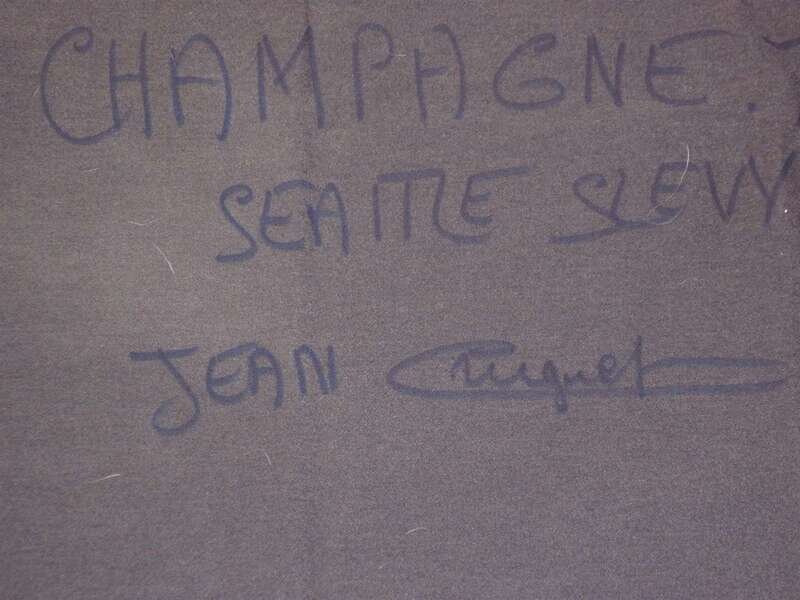 CHAMPAGNE.
SEATTLE SLEVY
JEAN Cruguet